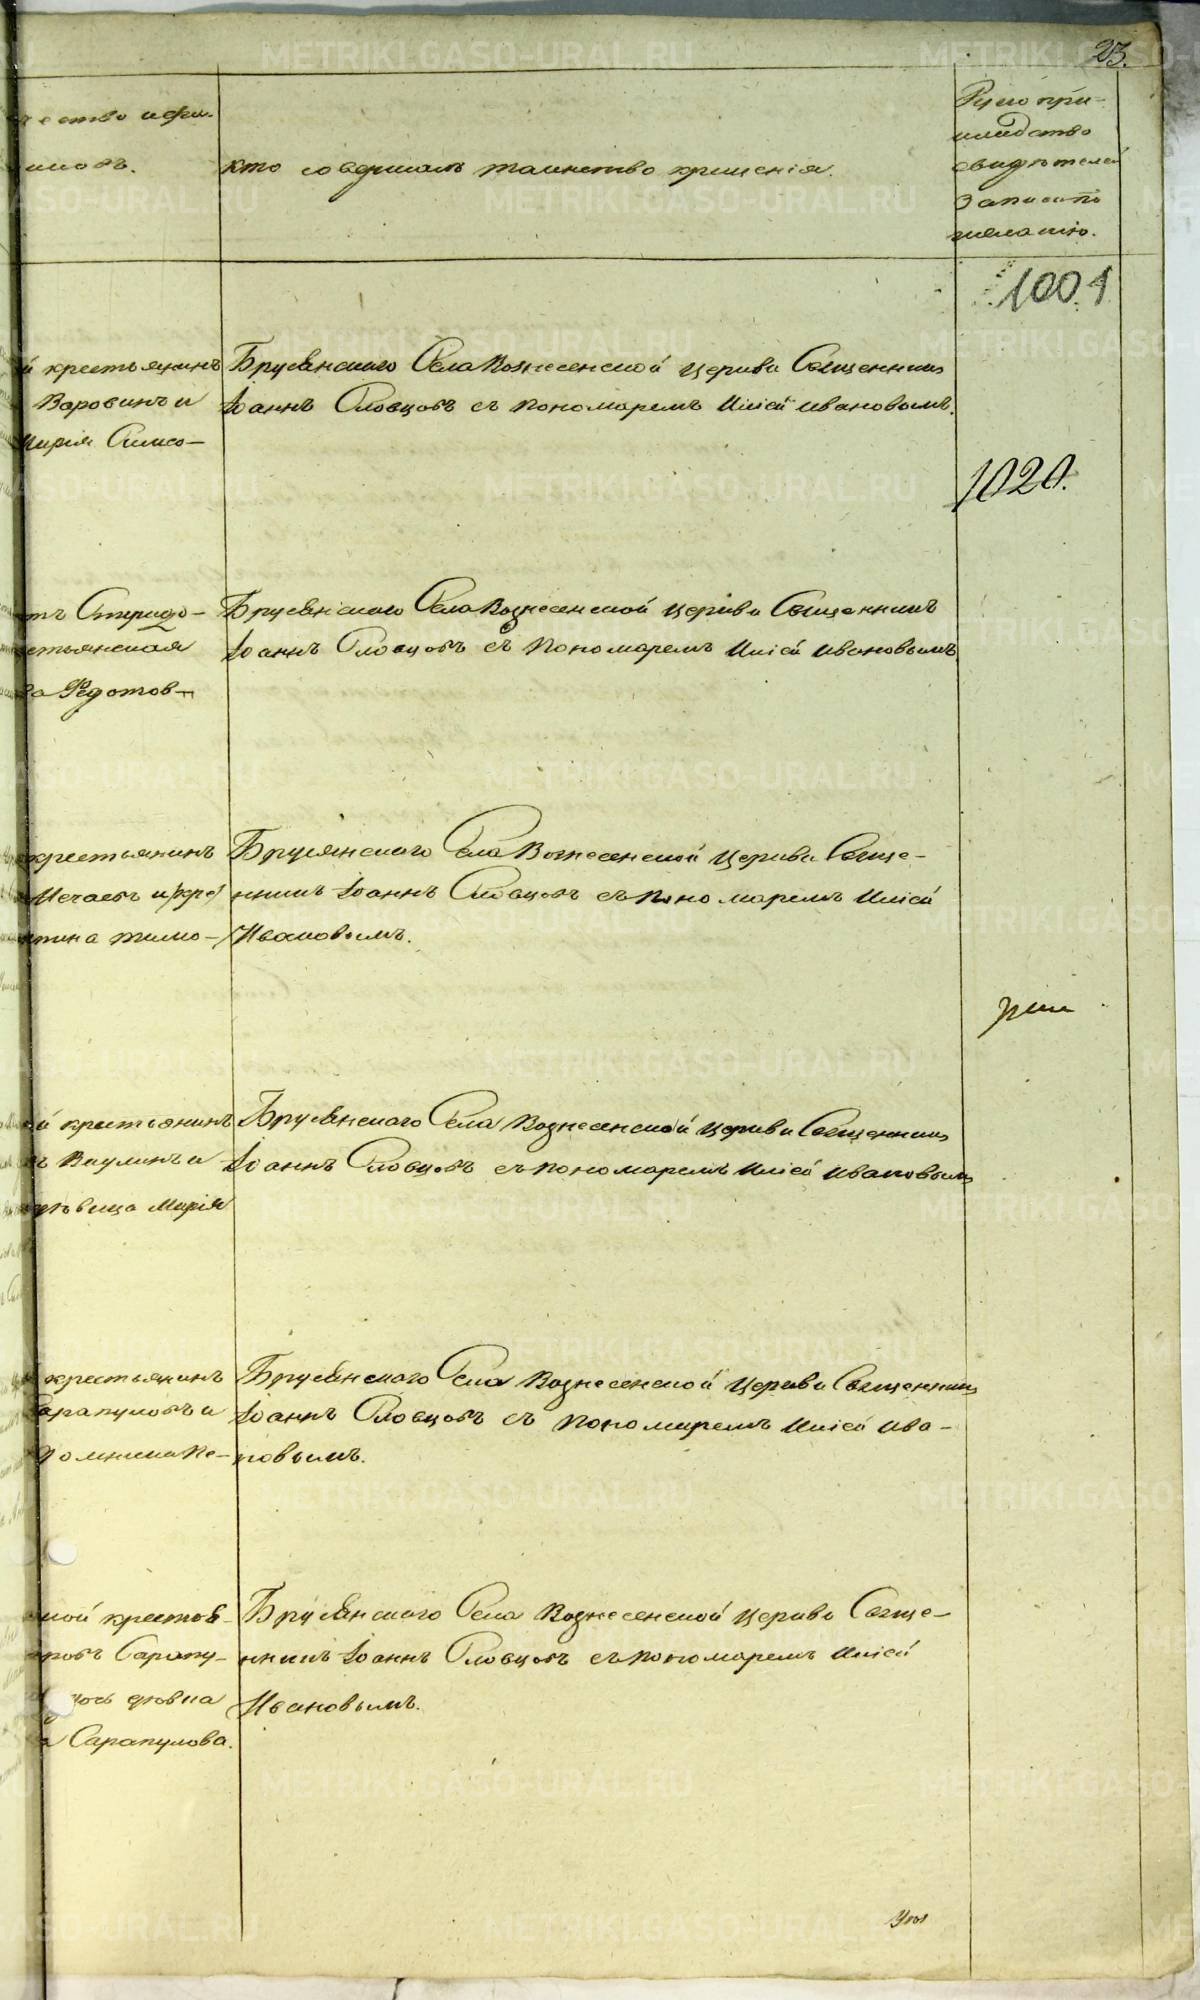 23.
кто совершалъ таинство крещенія.
Руко при-
кладство
свидѣтелей
записи по
желанію.
1001
й крестьянинъ
Варовинъ и
Марія Симео-
Брусянского Села Вознесенской Церкви Священникъ
Іоаннъ Словцовъ съ пономаремъ Иліей Ивановымъ.
1020.
Спиридо-
стьянская
Федотов-
Брусянского Села Вознесенской Церкви Священникъ
Іоаннъ Словцовъ съ Пономаремъ Иліей Ивановымъ
крестьянинъ
Мечаевъ и кре
тина Тимо-
Брусянского Села Вознесенской Церкви Свяще-
нникъ Іоаннъ Словцовъ съ Пономаремъ Иліей
Ивановымъ.
й крестьянинъ
ъ Ваулинъ и
дѣвица Марія
Брусянского Села Вознесенской Церкви Священникъ
Іоаннъ Словцовъ съ пономаремъ Иліей Ивановымъ
крестьянинъ
арапуловъ и
Домникія Пе-
Брусянского Села Вознесенской Церкви Священникъ
Іоаннъ Словцовъ съ Пономаремъ Иліей Ива-
новымъ.
ской крестов-
Сарапу-
дочь дѣвка
а Сарапулова.
Брусянского Села Вознесенской Церкви Свяще-
нникъ Іоаннъ Словцовъ съ Пономаремъ Иліей
Ивановымъ.
METRIKI.GASO-URAL.RU